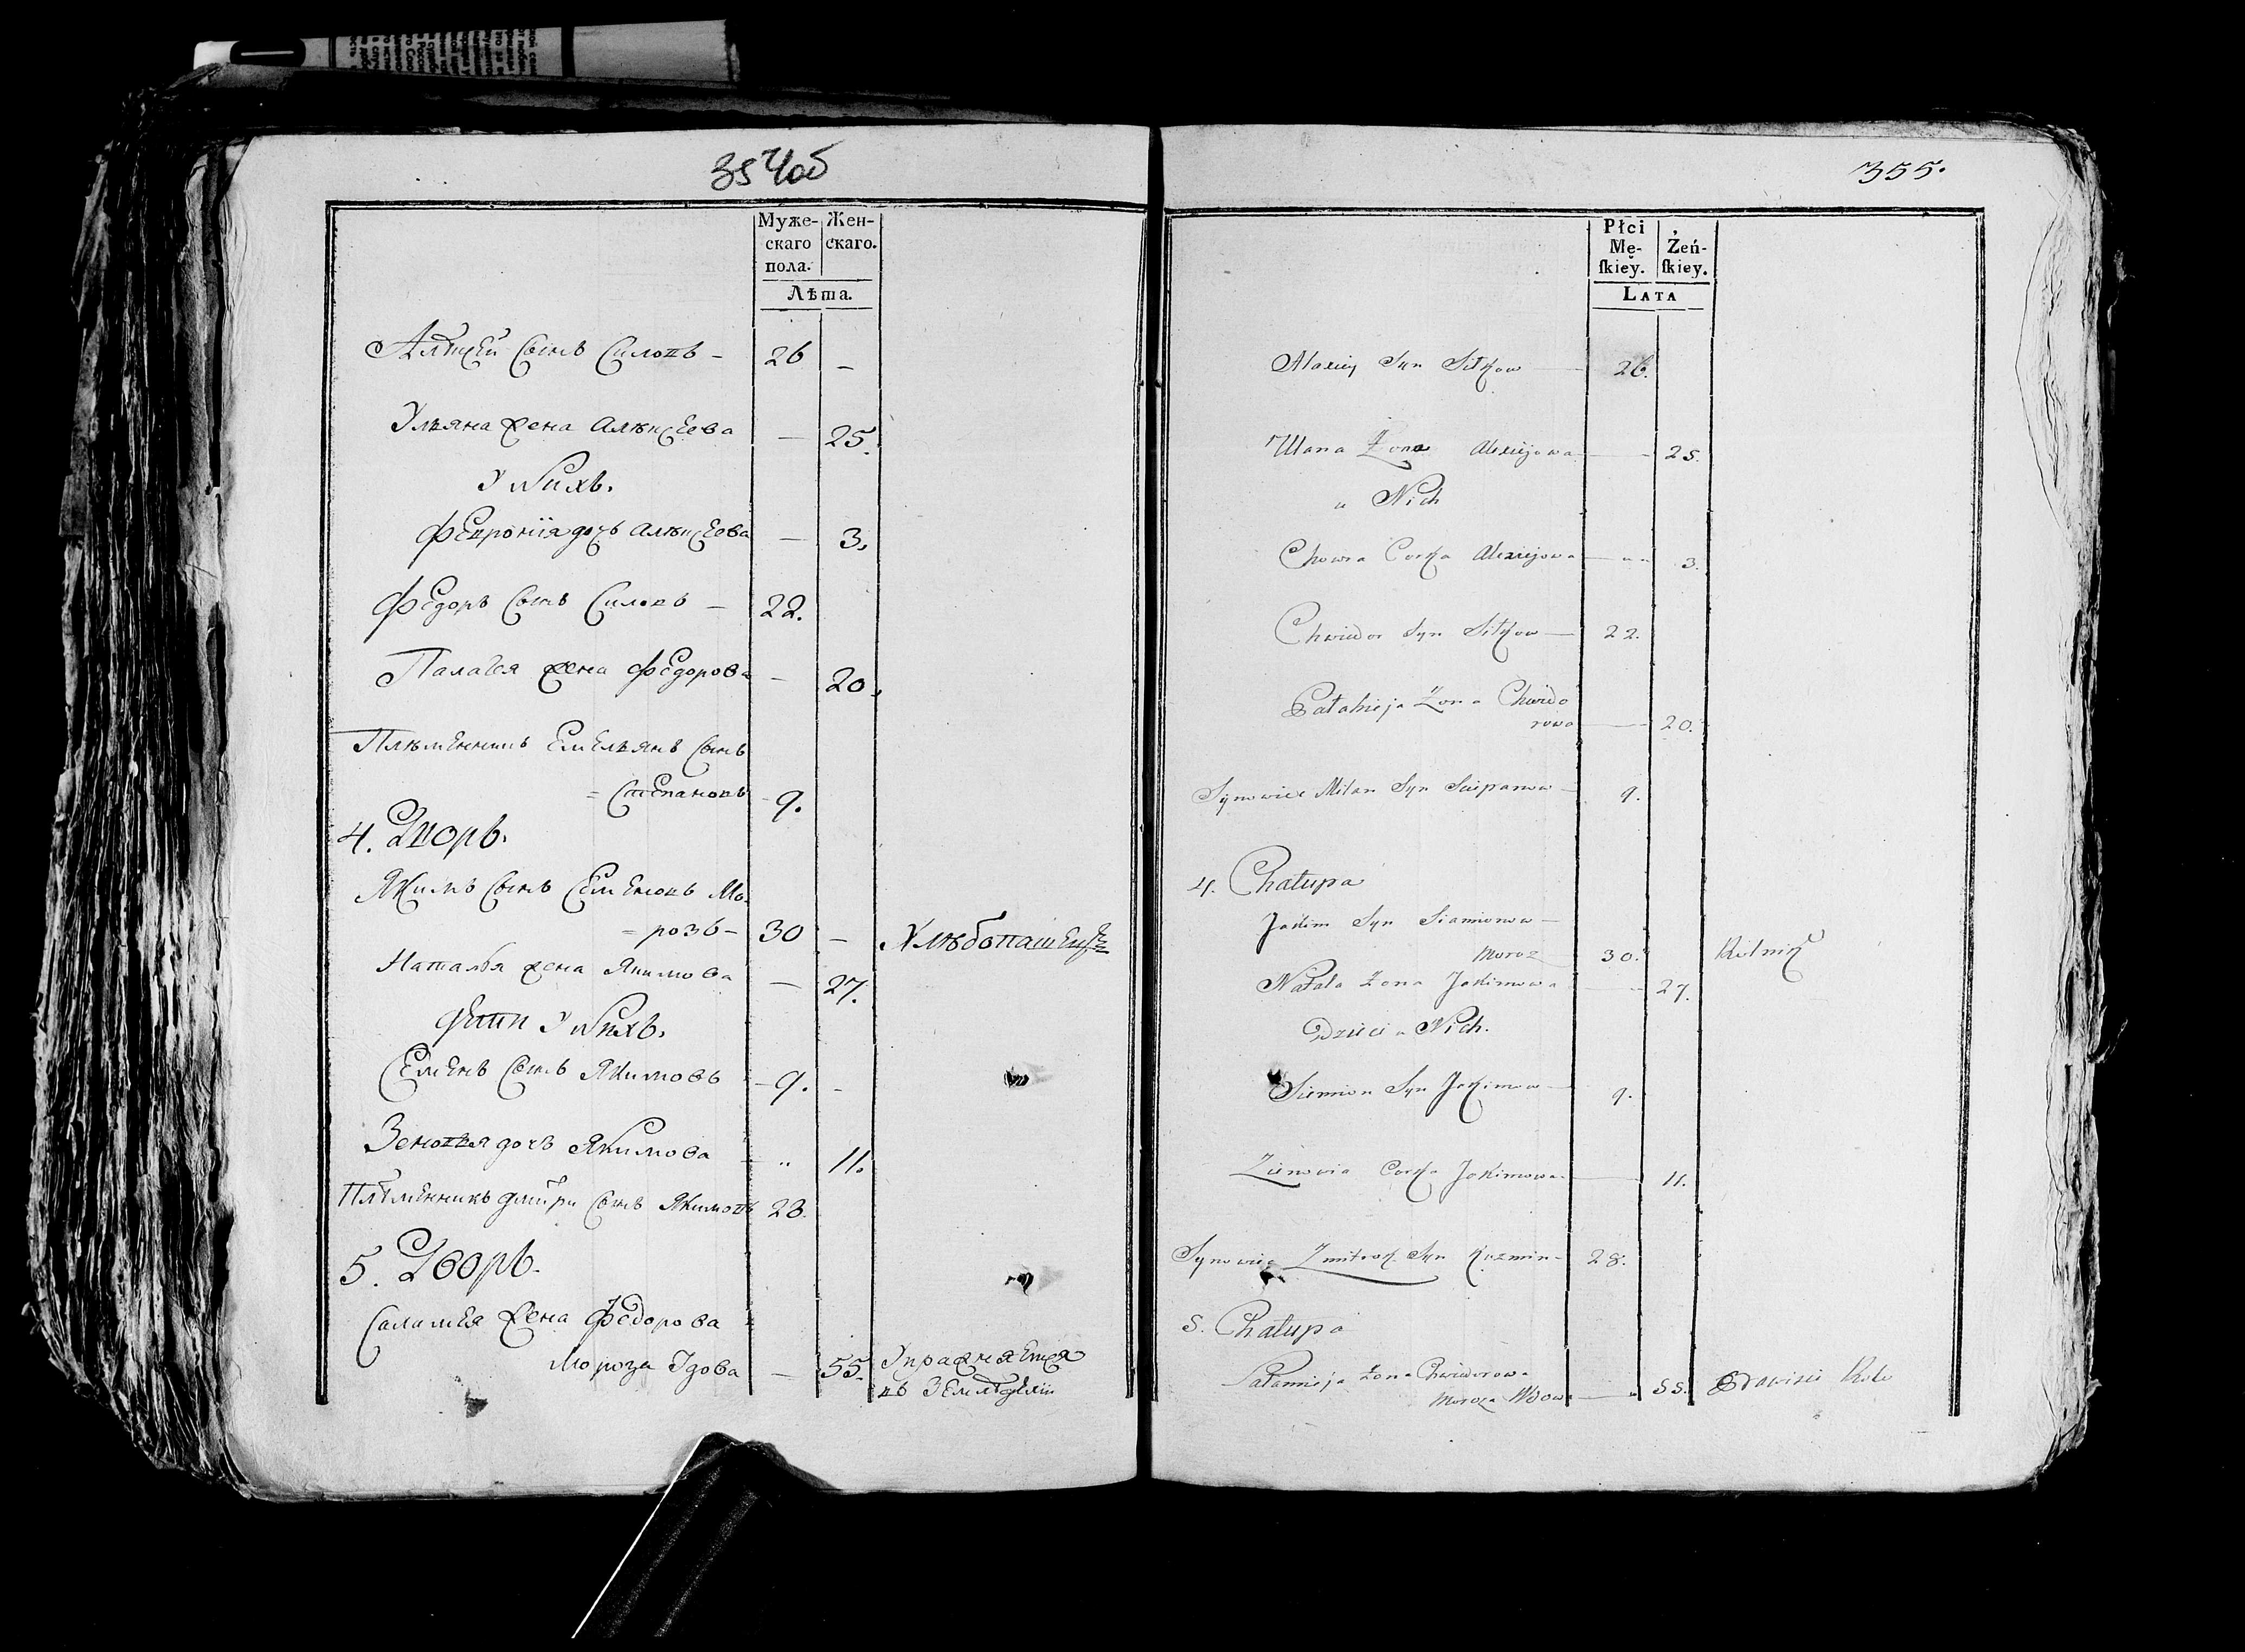 354об
Муже- Жен-
скаго скаго.
пола.
Лѣта.
Алѣксей сынъ Силовъ - 26 -
Ульяна жена Алѣксеева - 25.
У нихъ.
Феврониiя дочь Алѣксеева - 3.
Федоръ сынъ Силовъ - 22.
Палагея жена Федорова - 20.
Плѣменникъ Емельянъ сынъ
= Степановъ - 9.
4. Дворъ.
Якимъ сынъ Семеновъ Мо-
= розъ - 30 - Хлѣбопашецъ
Наталья жена Якимова - 27.
Дети у нихъ.
Семенъ сынъ Якимовъ - 9. -
Зеновья дочь Якимова - " 11.
Плѣменникъ Дмитри сынъ Якимовъ 28.
5. Дворъ.
Саламея жена Федорова
Мороза вдова - 55. Упражняется
въ земледелiи
355.
Płci Żeń-
Mę- ſkiey.
ſkiey.
LATA
Alaxiej Syn Siłkow 26.
Ulana Żona Alexiejowa 25.
u Nich
Chowra Corka Alexiejowa 3.
Chwiedor Syn Siłkow 22.
Pałahieja Żona Chwiedo
rowa 20.
Synowiec Milan Syn Sciepanow 9.
4. Chałupa
Jakim Syn Siamionow
Moroz 30. Rolnik
Natala Żona Jakimowa 27.
Dzieci u Nich.
Siemion Syn Jakimow 9.
Zienovia Corka Jakimowa 11.
Synowiec Zmitrok Syn Kuzmin 28.
5. Chałupa
Sałamieja Żona Chwiedorowa
Moroza Wdowa 55.